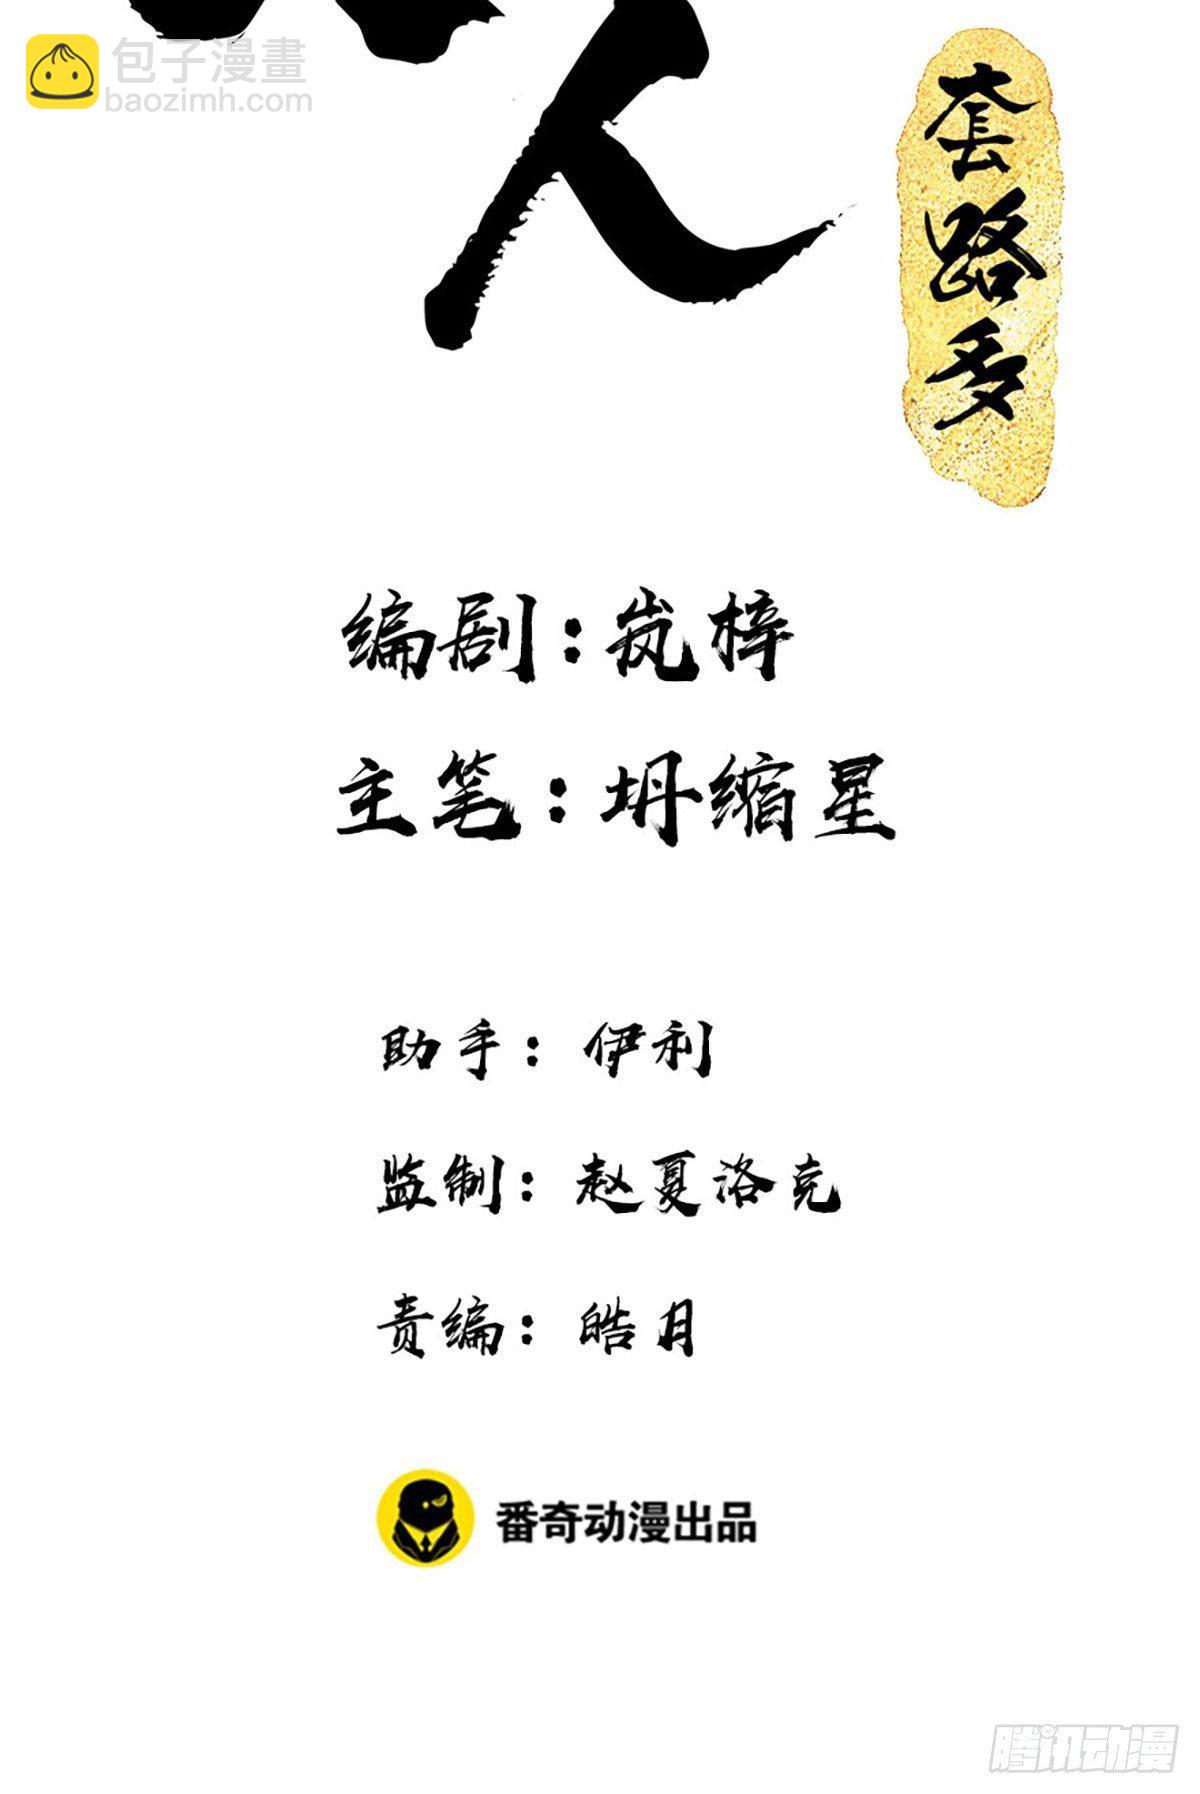 包子漫畫
baozimh.com
人
套路多
编剧：岚梓
主笔：坍缩星
助手：伊利
监制：赵夏洛克
责编：皓月
番奇动漫出品
腾讯动漫